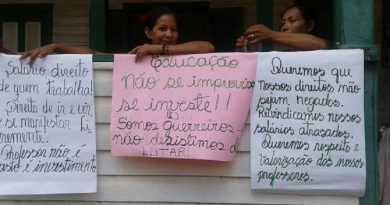 Salário direito
de quem trabalha!
Direito de ir e vir
e se manifestar li
nemente.
Professor não é
gasto é investimento
Educação
não se improvisa
se investe!!
Somos guerreiros
não desistimos de
LUTAR!
Queremos que
nossos direitos não
sejam negados.
Reivindicamos nossos
salários atrasados.
Queremos respeito e
valorização dos nossos
professores.